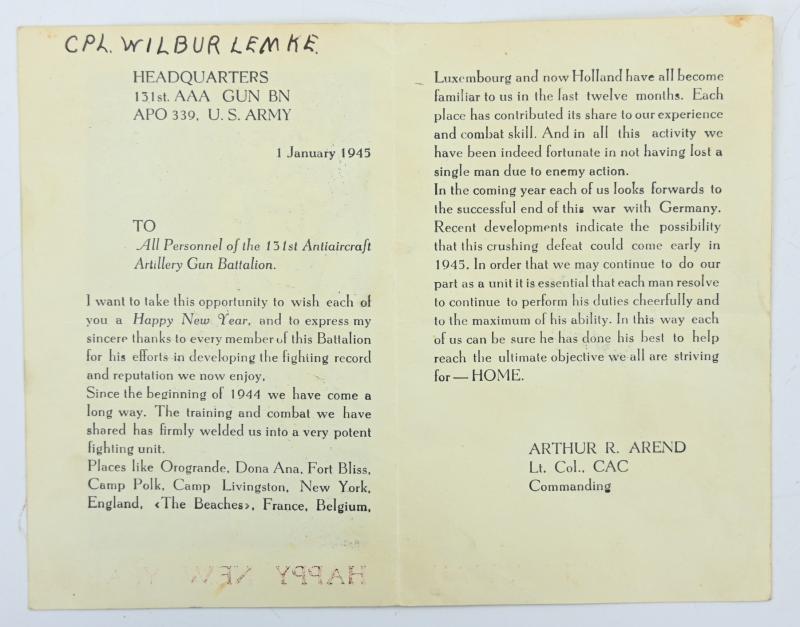 CPL. WILBUR LEMKE.
HEADQUARTERS
131st. AAA GUN BN
APO 339, U. S. ARMY
1 January 1945
TO
All Personnel of the 131st Antiaircraft
Artillery Gun Battalion.
I want to take this opportunity to wish each of
you a Happy New Year, and to express my
sincere thanks to every member of this Battalion
for his efforts in developing the fighting record
and reputation we now enjoy.
Since the beginning of 1944 we have come a
long way. The training and combat we have
shared has firmly welded us into a very potent
fighting unit.
Places like Orogrande, Dona Ana, Fort Bliss,
Camp Polk, Camp Livingston, New York,
England, «The Beaches», France, Belgium,
Luxembourg and now Holland have all become
familiar to us in the last twelve months. Each
place has contributed its share to our experience
and combat skill. And in all this activity we
have been indeed fortunate in not having lost a
single man due to enemy action.
In the coming year each of us looks forwards to
the successful end of this war with Germany.
Recent developments indicate the possibility
that this crushing defeat could come early in
1945. In order that we may continue to do our
part as a unit it is essential that each man resolve
to continue to perform his duties cheerfully and
to the maximum of his ability. In this way each
of us can be sure he has done his best to help
reach the ultimate objective we all are striving
for — HOME.
ARTHUR R. AREND
Lt. Col., CAC
Commanding
HAPPY NEW